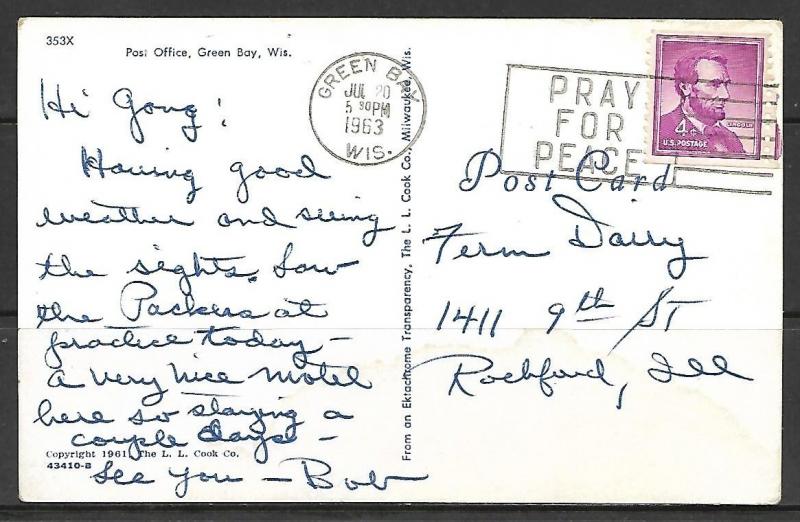 353X
Post Office, Green Bay, Wis.
Hi Gong!
Having good
weather and seeing
the sights. Saw
the Packers at
practice today -
a very nice motel
here so staying a
couple days -
See you - Bob
Copyright 1961 The L. L. Cook Co.
43410-B
From an Ektachrome Transparency, The L. L. Cook Co., Milwaukee, Wis.
GREEN BAY
JUL 20
5 30 PM
1963
WIS.
PRAY
FOR
PEACE
LINCOLN
4¢
U.S. POSTAGE
Post Card
Ferm Dairy
1411 9th St
Rockford, Ill